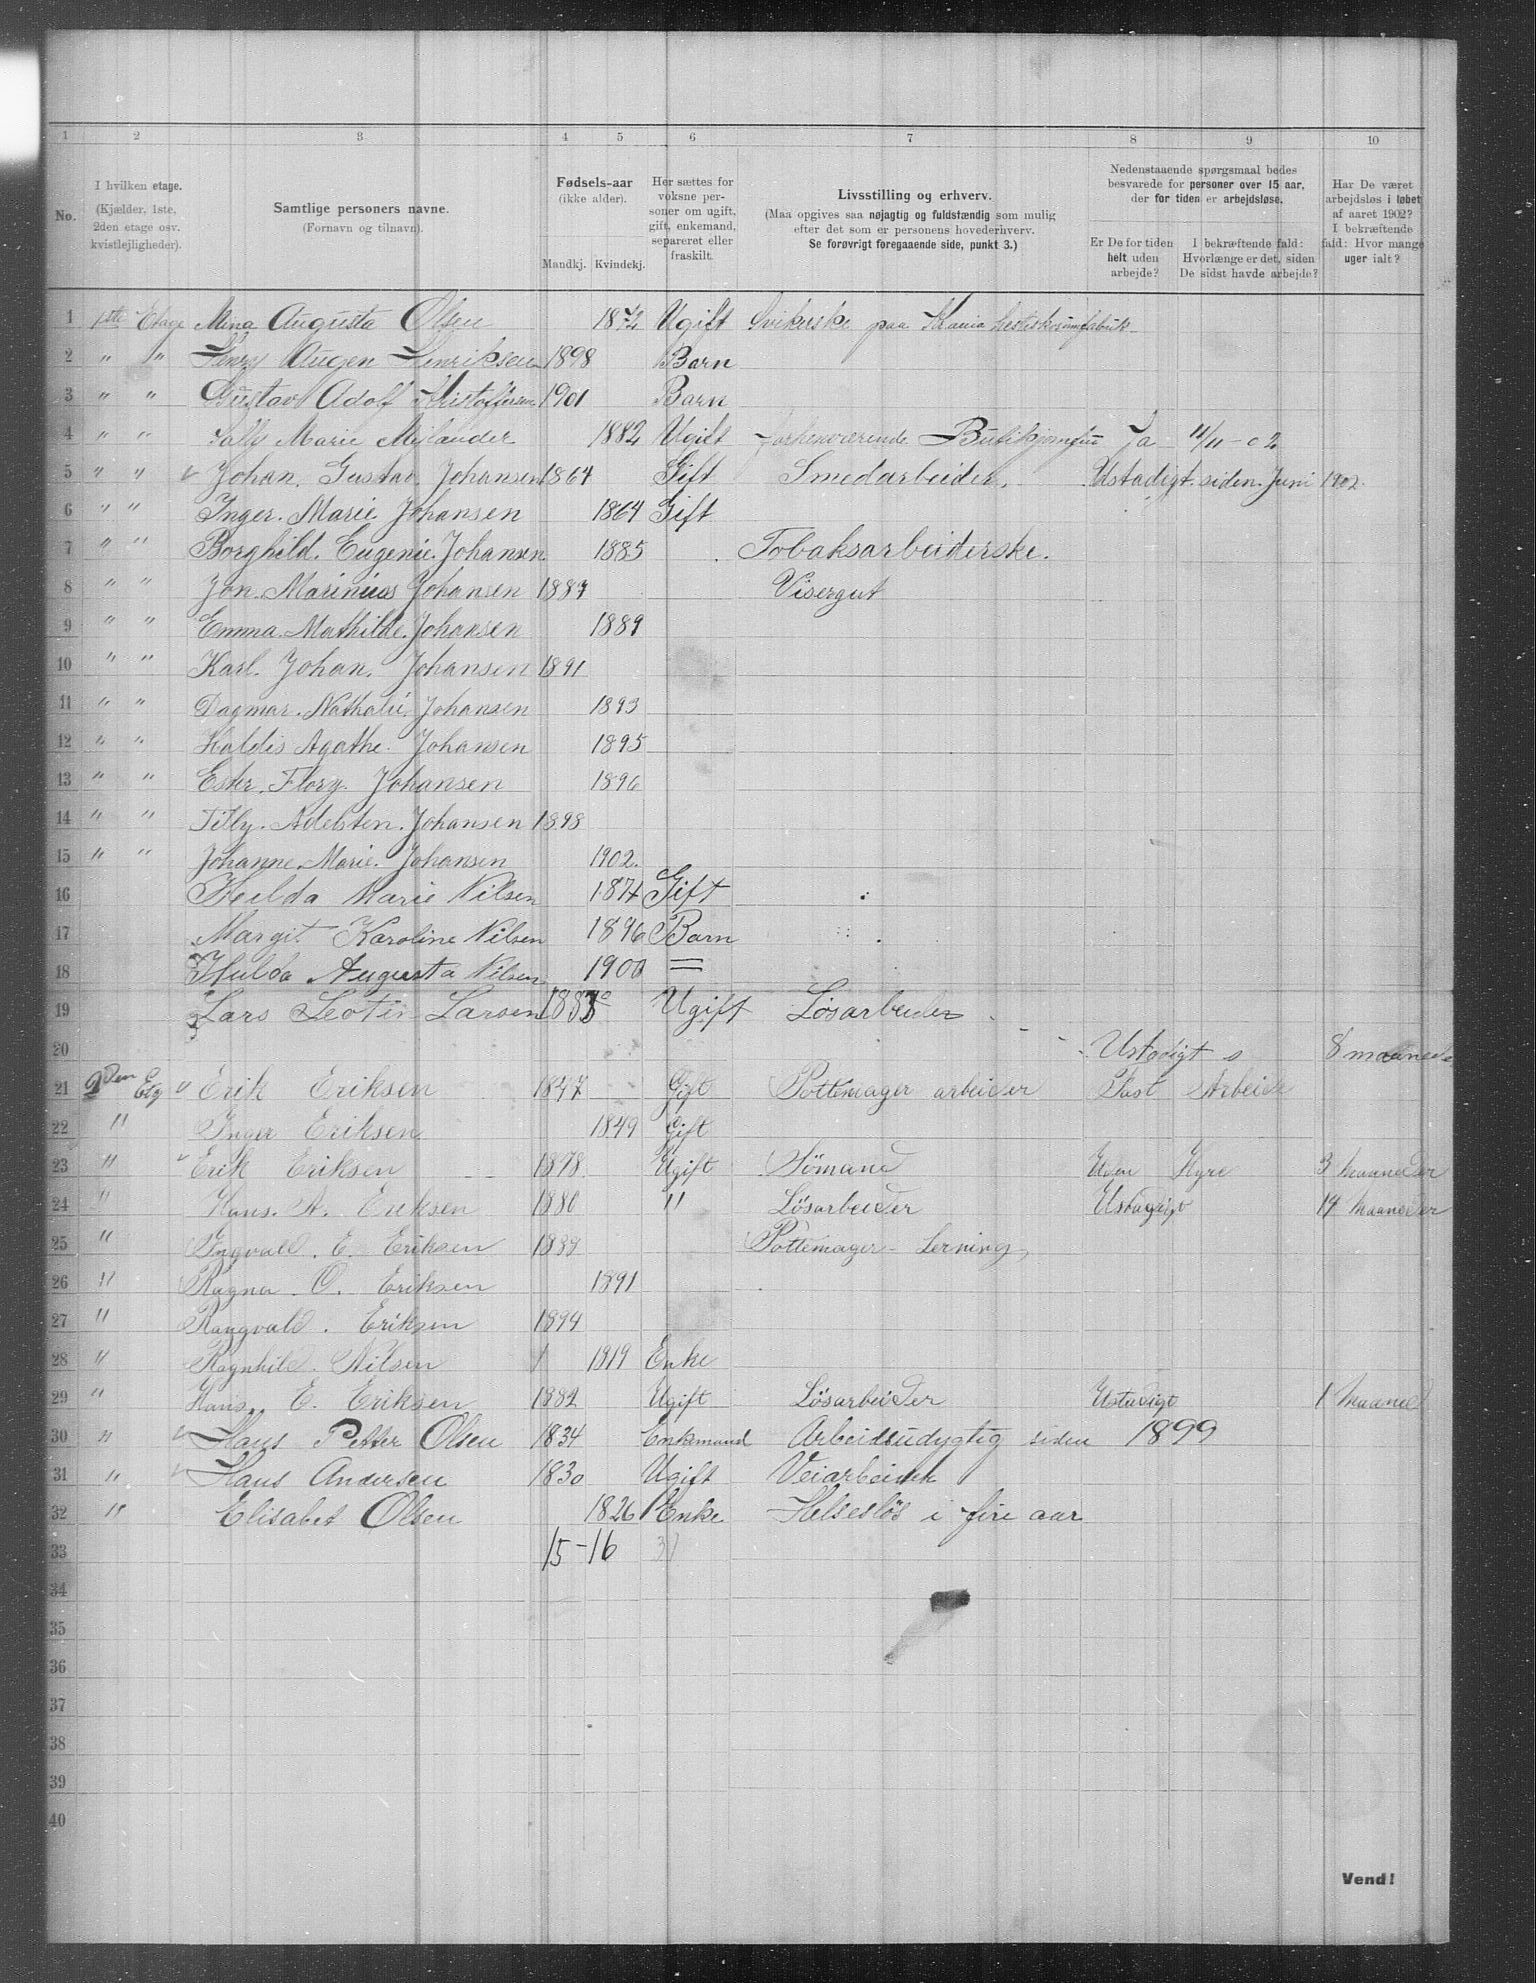 1 2 3 4 5 6 7 8 9 10
No.
I hvilken etage.
(Kjælder, 1ste,
2den etage osv.
kvistlejligheder).
Samtlige personers navne.
(Fornavn og tilnavn).
Fødsels-aar
(ikke alder).
Mandkj. Kvindekj.
Her sættes for
voksne per-
soner om ugift,
gift, enkemand,
separeret eller
fraskilt.
Livsstilling og erhverv.
(Maa opgives saa nøjagtig og fuldstændig som mulig
efter det som er personens hovederhverv.
Se forøvrigt foregaaende side, punkt 3.)
Nedenstaaende spørgsmaal bedes
besvarede for personer over 15 aar,
der for tiden er arbejdsløse.
Er De for tiden
helt uden
arbejde?
I bekræftende fald:
Hvorlænge er det, siden
De sidst havde arbejde?
Har De været
arbejdsløs i løbet
af aaret 1902?
I bekræftende
fald: Hvor mange
uger ialt?
1 1ste Etage Mina Augusta Olsen Ugift paa Krania hesteskosømfabrik
2 " " Augen Henriksen 1898 Barn
3 " " Gustav Adolf Kristoffersen 1901 Barn
4 " " Marie Mejlænder 1882 Ugift forhenværende Butikjomfru Ja 11/11-02
5 " " Johan. Gustav. Johansen 1864 Gift Smedarbeider. Ustadigt. siden. Juni 1902.
6 " " Inger. Marie. Johansen 1864 Gift
7 " " Borghild. Eugenie. Johansen 1885 Tobaksarbeiderske.
8 " " Jon. Marinius Johansen 1887 Visergut
9 " " Emma. Mathilde. Johansen 1889
10 " " Karl. Johan. Johansen 1891
11 " " Dagmar. Nathalie. Johansen 1893
12 " " Haldis Agathe. Johansen 1895
13 " " Ester. Flory. Johansen 1896
14 " " Tilly. Adelsten. Johansen 1898
15 " " Johanne. Marie. Johansen 1902.
16 Hulda Marie Nilsen 1874 Gift
17 Margit Karoline Nilsen 1896 Barn
18 Hulda Augusta Nilsen 1900 =
19 Lars Larsen Ugift Løsarbeider
20 Ustadigt 8 maaneder
21 2den Etg Erik Eriksen 1847 Gift Pottemager arbeider Fast Arbeide
22 " Inger Eriksen 1849 Gift
23 " Erik Eriksen 1878 Ugift Sömand Uden Hyre 3 maaneder
24 " Hans. A. Eriksen 1880 " Lösarbeider Ustadigt 14 maaneder
25 " Ingvald. E. Eriksen 1888 Pottemager Lerning,
26 " Ragna O. Eriksen 1891
27 " Rangvald. Eriksen 1894
28 " Ragnhild. Nilsen 1819 Enke
29 " Hans. E. Eriksen 1882 Ugift Lösarbeider Ustadigt 1 maaned
30 " Hans Petter Olsen 1834 Enkemand Arbeidsudygtig siden 1899
31 " Hans Andersen 1830 Ugift Veiarbeider
32 " Elisabet Olsen 1826 Enke Helseslös i fire aar
33 15-16 31
34
35
36
37
38
39
40
Vend!